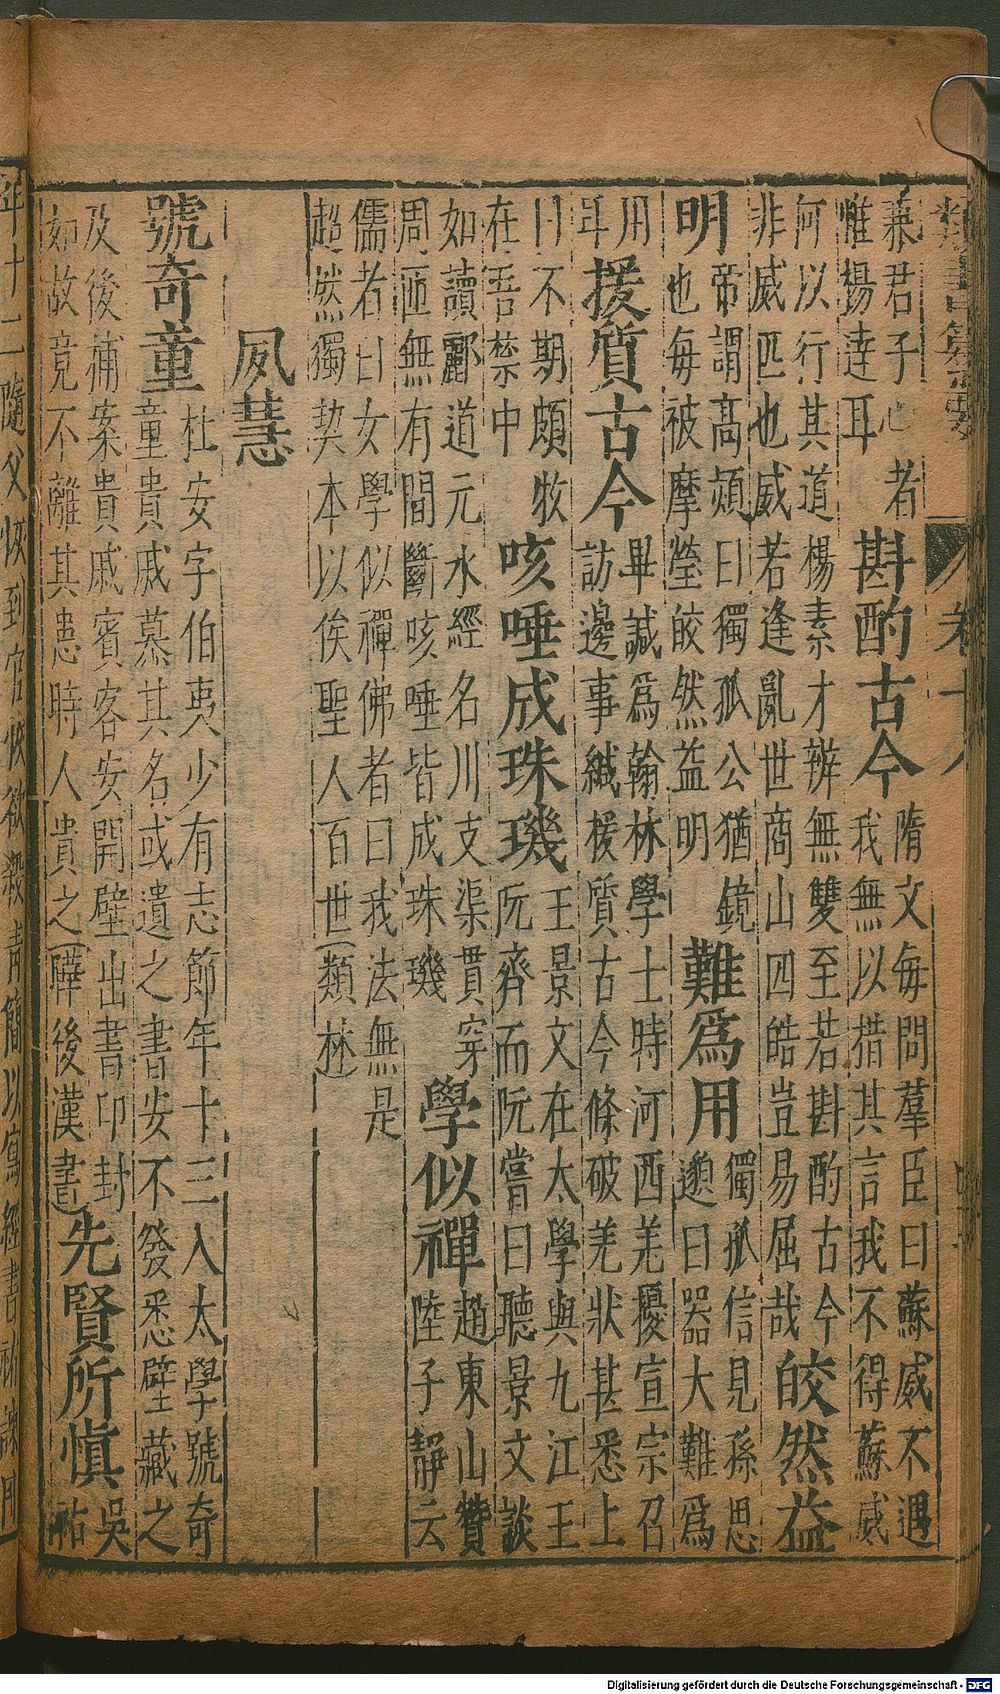 類書集要 卷十八
兼君子心者
惟楊達耳
斟酌古今
隋文每問羣臣曰蘇威不遇
我無以措其言我不得蘇威
何以行其道楊素才辨無雙至若斟酌古今
非威匹也威若逢亂世商山四皓豈易屈哉
皎然益
明
帝謂高熲曰獨孤公猶鏡
也每被摩瑩皎然益明
難爲用
獨孤信見孫思
邈曰器大難爲
用
耳
援質古今
畢諴爲翰林學士時河西羌擾宣宗召
訪邊事緘援質古今條破羌狀甚悉上
曰不期頗牧
在吾禁中
咳唾成珠璣
王景文在太學與九江王
阮齊而阮嘗曰聽景文談
如讀酈道元水經名川支渠貫穿
周匝無有間斷咳唾皆成珠璣
學似禪
趙東山贊
陸子靜云
儒者曰女學似禪佛者曰我法無是
超然獨契本以俟聖人百世(類林)
夙慧
號奇童
杜安字伯夷少有志節年十三入太學號奇
童貴戚慕其名或遺之書安不發悉壁藏之
及後捕案貴戚賓客安開壁出書印封
如故竟不離其患時人貴之(曄後漢書)
先賢所慎
吳
祐
年十二隨父恢到官恢欲殺青簡以寫經書祐諫
Digitalisierung gefördert durch die Deutsche Forschungsgemeinschaft - DFG